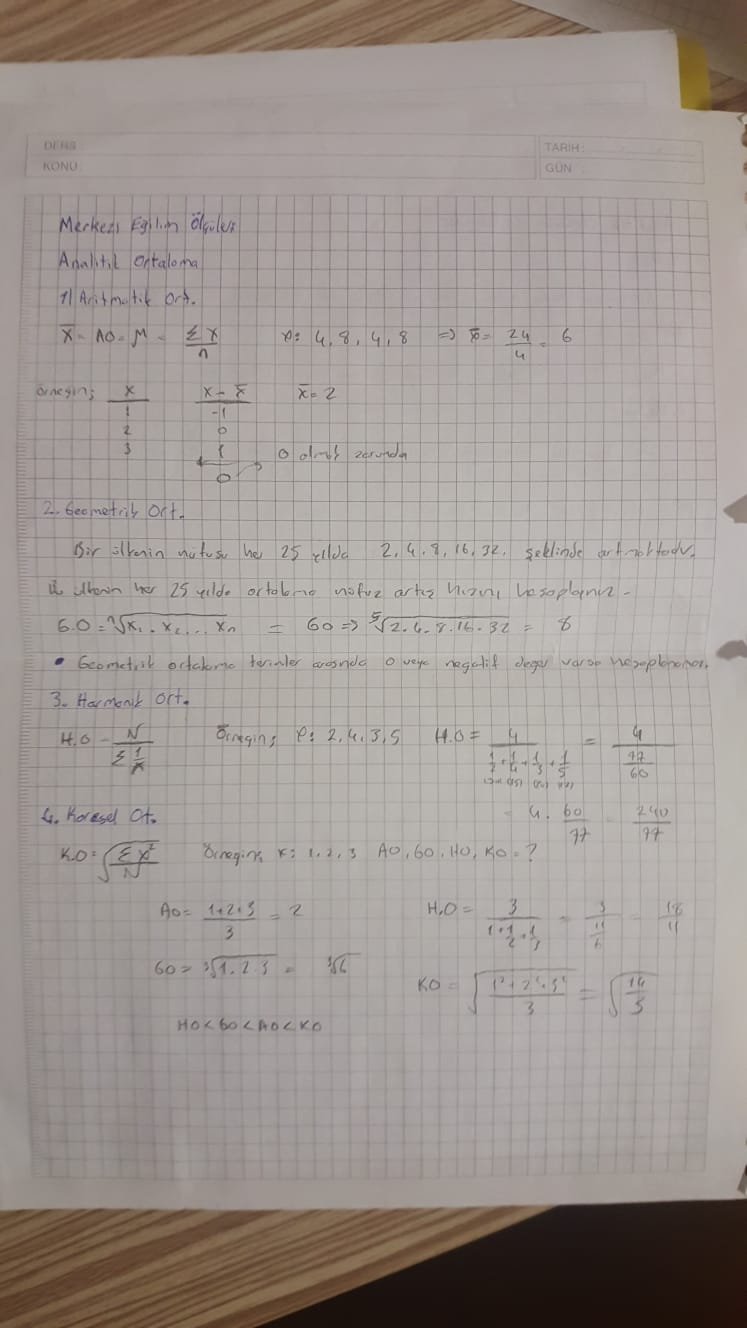 DERS :
TARİH :
KONU :
GÜN :
Merkezi Eğilim Ölçüleri
Analitik Ortalama
1) Aritmetik Ort.
x̄ = AO = μ = Σx / n     p: 4, 8, 4, 8 ⇒ x̄ = 24/4 = 6
Örneğin;   x     x - x̄     x̄ = 2
1     -1
2     0
3     1     0 olmak zorunda
0
2. Geometrik Ort.
Bir ülkenin nüfusu her 25 yılda 2, 4, 8, 16, 32, şeklinde artmaktadır.
ülkenin her 25 yılda ortalama nüfuz artış hızını hesaplayınız.
G.O = ⁿ√(x₁ . x₂ ... xₙ) = GO ⇒ ⁵√(2.4.8.16.32) = 8
• Geometrik ortalama terimler arasında 0 veya negatif değer varsa hesaplanamaz.
3. Harmonik Ort.
H.O = N / Σ 1/x     Örneğin; p: 2, 4, 3, 5     H.O = 4 / (1/2 + 1/4 + 1/3 + 1/5) = 4 / (77/60)
(30) (15) (20) (12)
= 4 . 60/77 = 240/77
4. Karesel Ort.
K.O = √(Σx² / N)     Örneğin; x: 1, 2, 3   AO, GO, HO, KO = ?
AO = (1+2+3) / 3 = 2     H.O = 3 / (1 + 1/2 + 1/3) = 3 / (11/6) = 18/11
GO = ³√(1.2.3) = ³√6     KO = √((1² + 2² + 3²) / 3) = √(14/3)
HO < GO < AO < KO